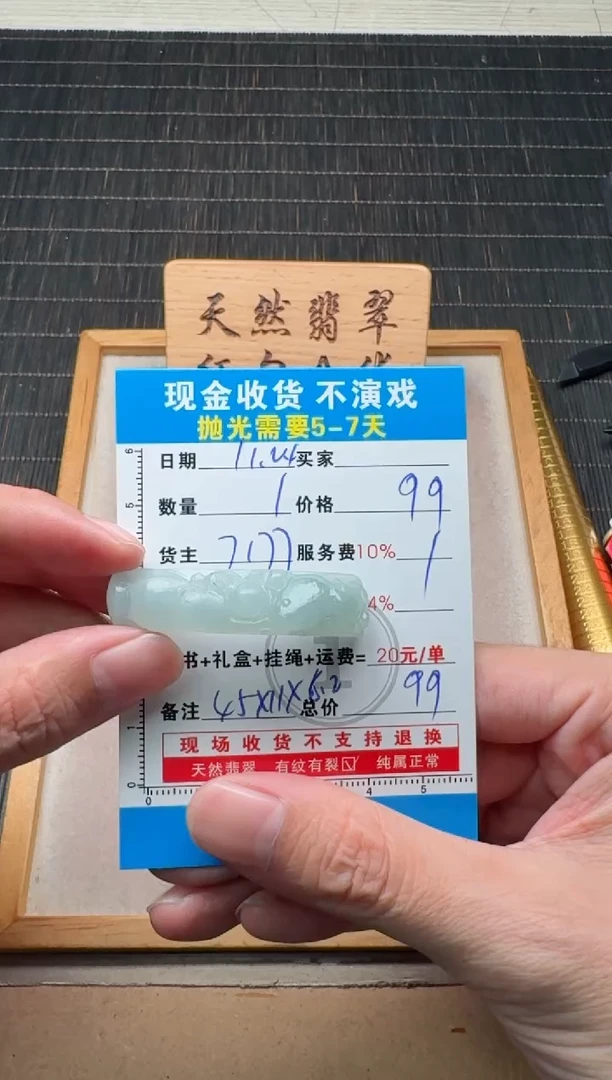 天然翡翠
现金收货 不演戏
抛光需要5-7天
日期 11.24 买家
数量 1 价格 99
货主 7177 服务费10% /
4%
书+礼盒+挂绳+运费= 20元/单
备注 45X11X6.2 总价 99
现场收货不支持退换
天然翡翠 有纹有裂☑ 纯属正常
6
5
1
0
0
4
5